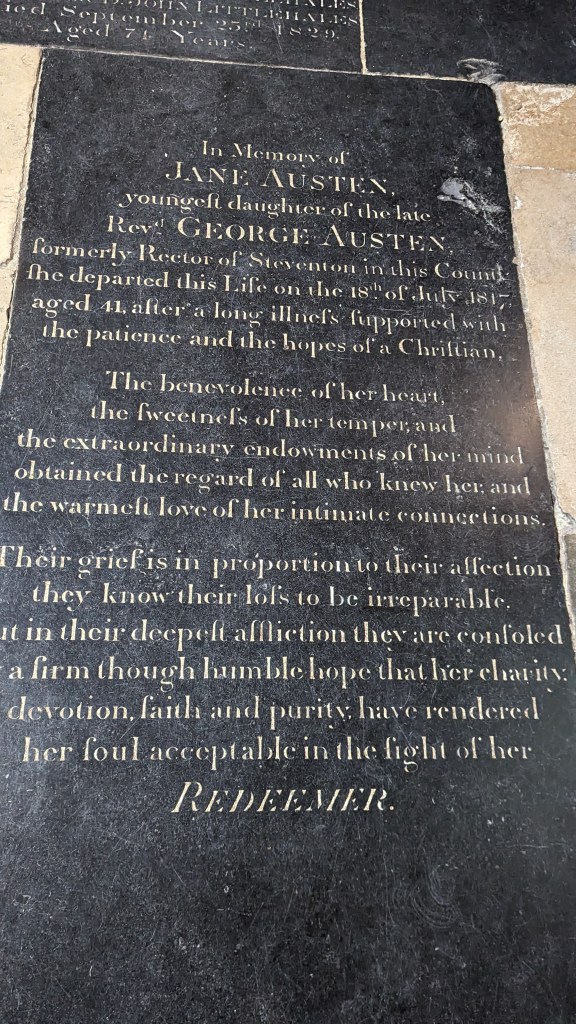 JOHN LITTLEHALES
died September 23rd 1829.
Aged 74 Years.
In Memory of
JANE AUSTEN,
youngeſt daughter of the late
Revd. GEORGE AUSTEN,
formerly Rector of Steventon in this County
ſhe departed this Life on the 18th. of July 1817,
aged 41, after a long illneſs ſupported with
the patience and the hopes of a Chriſtian.
The benevolence of her heart,
the ſweetneſs of her temper, and
the extraordinary endowments of her mind
obtained the regard of all who knew her, and
the warmeſt love of her intimate connections.
Their grief is in proportion to their affection
they know their loſs to be irreparable.
ut in their deepeſt affliction they are conſoled
a firm though humble hope that her charity,
devotion, faith and purity, have rendered
her ſoul acceptable in the ſight of her
REDEEMER.